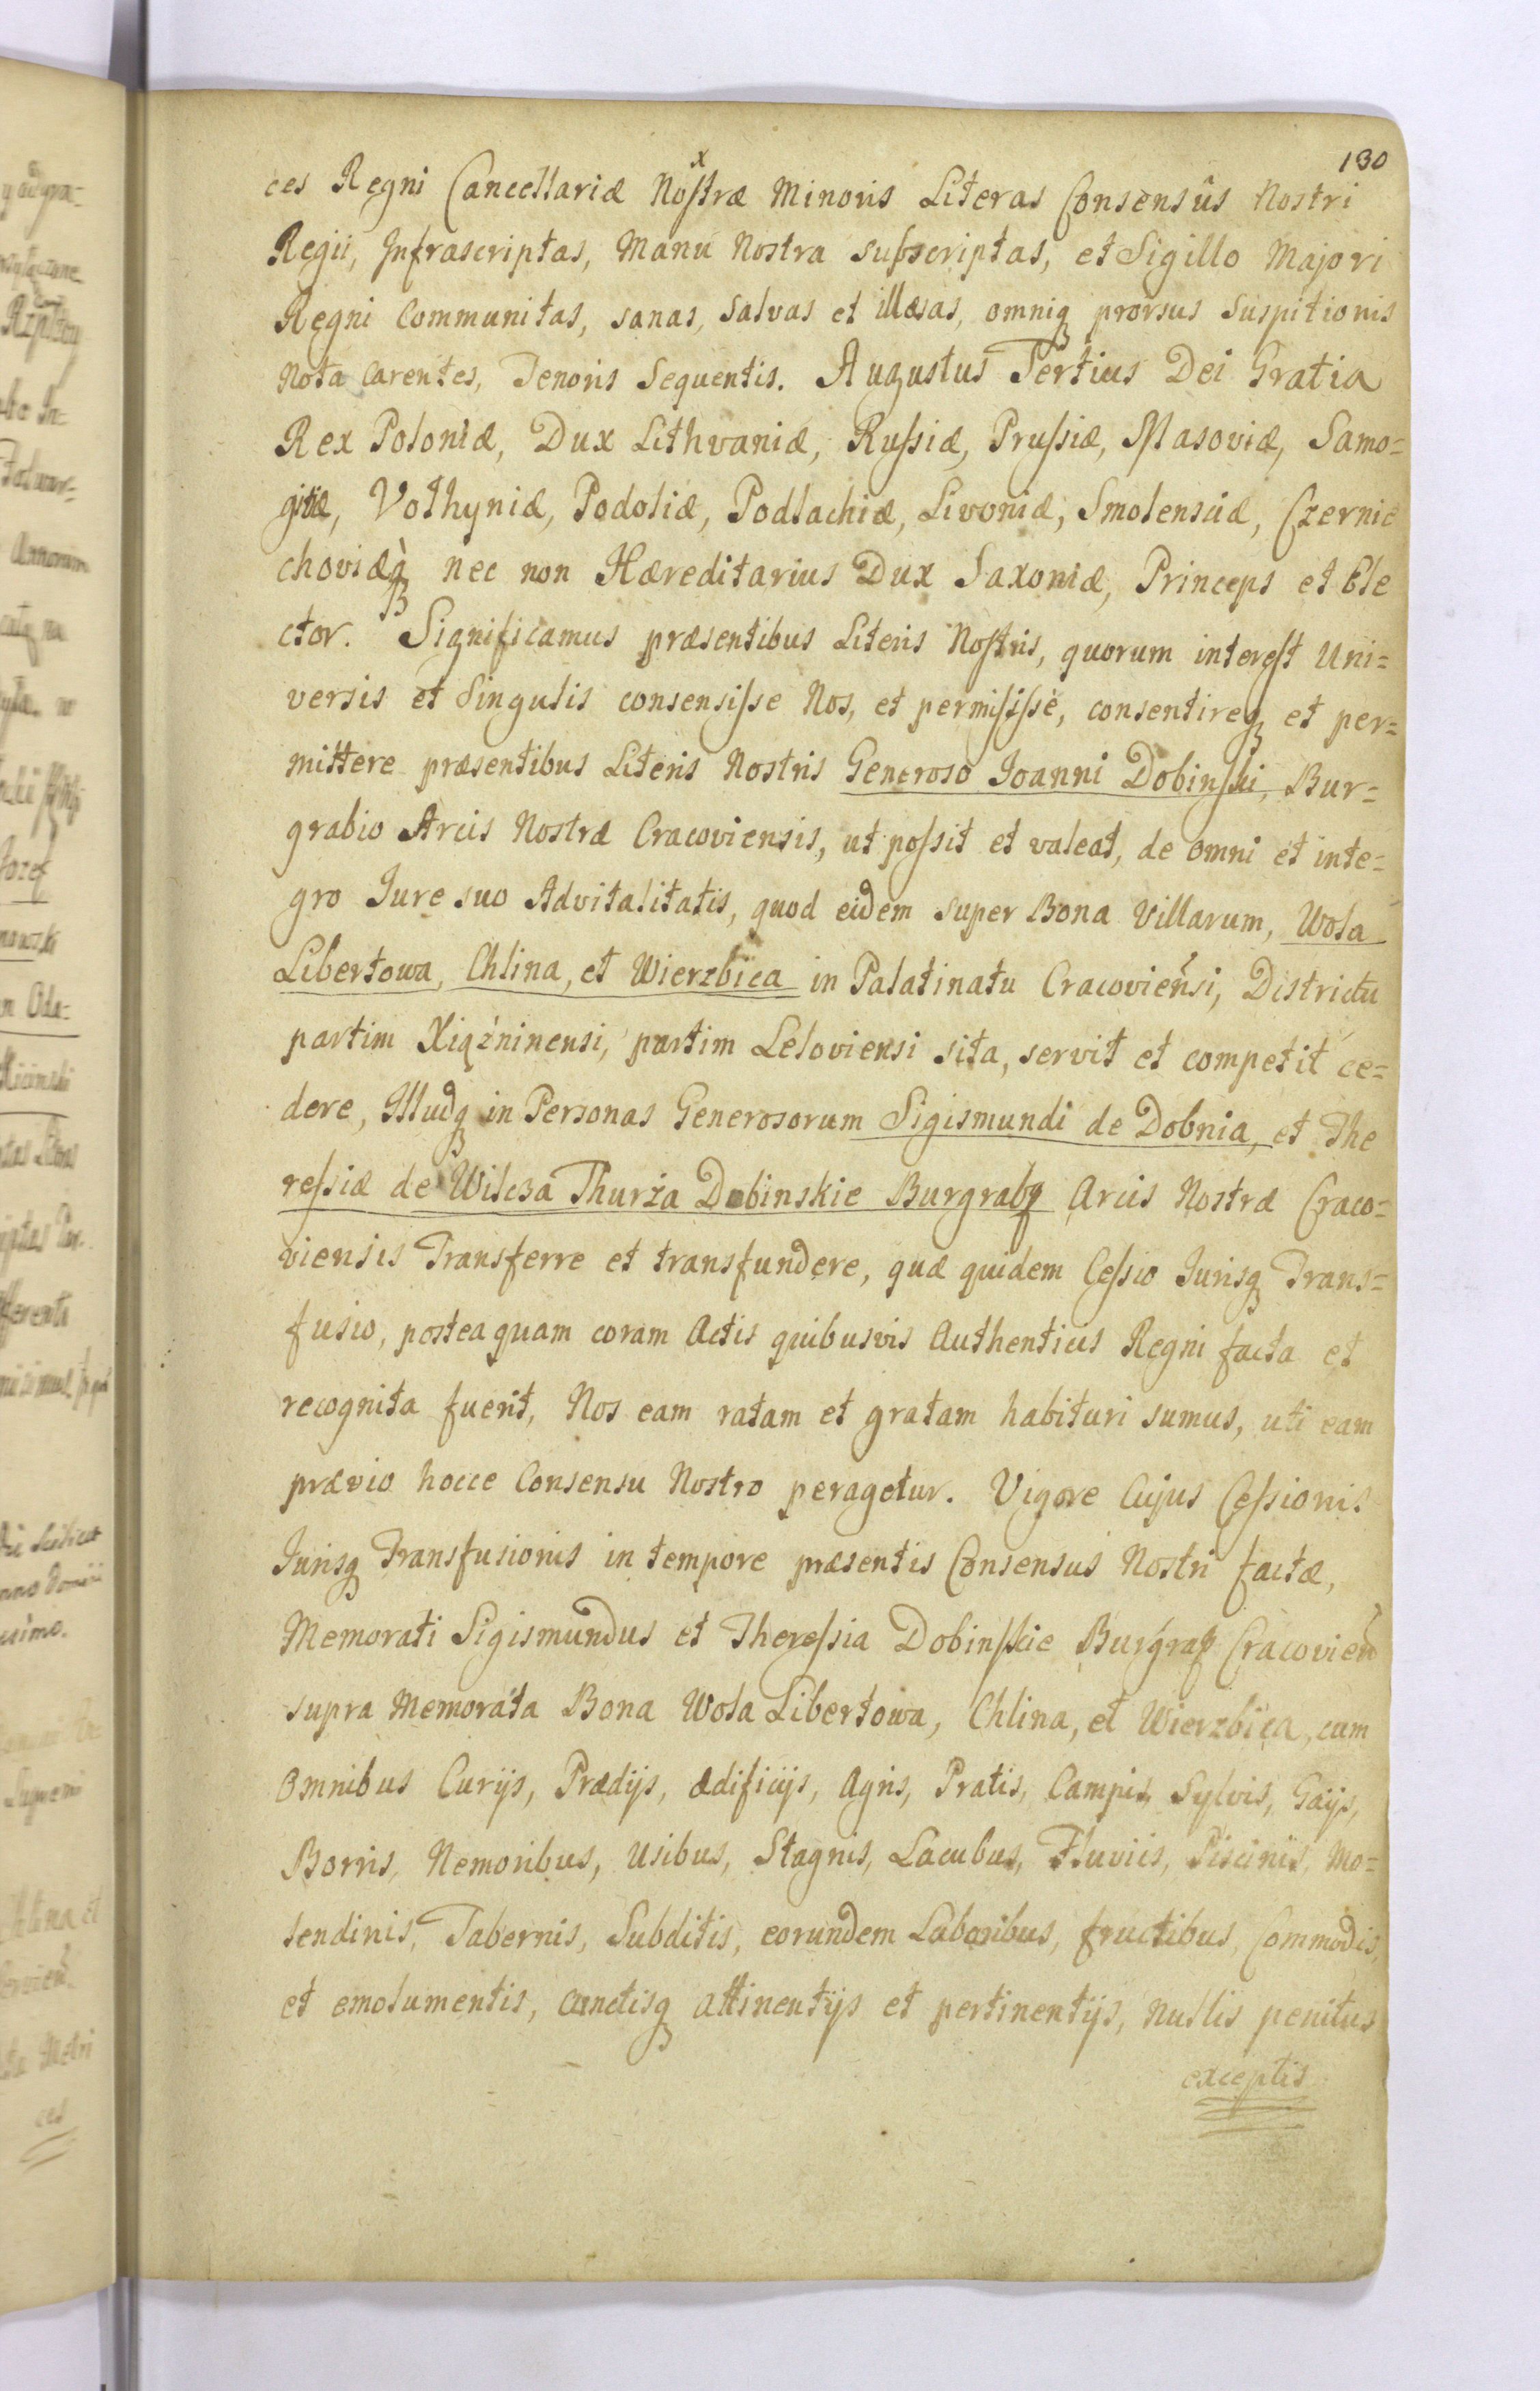 130
ces Regni Cancellariæ Nostræ Minoris Literas Consensûs Nostri
Regii, Infrascriptas, Manu Nostra subscriptas, et Sigillo Majori
Regni Communitas, sanas, salvas et illæsas, omniq prorsus Suspitionis
Nota Carentes, Tenoris Sequentis. Augustus Tertius Dei Gratia
Rex Poloniæ, Dux Lithvaniæ, Russiæ, Prussiæ, Masoviæ, Samo=
gitiæ, Volhyniæ, Podoliæ, Podlachiæ, Livoniæ, Smolensciæ, Czernie
choviæq nec non Hæreditarius Dux Saxoniæ, Princeps et Ele
ctor. Significamus præsentibus Literis Nostris, quorum interest Uni=
versis et Singulis consensisse Nos, et permisisse, consentireq et per=
mittere præsentibus Literis Nostris Generoso Joanni Dobinski, Bur=
grabio Arcis Nostræ Cracoviensis, ut possit et valeat, de omni et inte=
gro Jure suo Advitalitatis, quod eidem super Bona Villarum, Wola
Libertowa, Chlina, et Wierzbica in Palatinatu Cracovieñsi, Districtu
partim Xiążninensi, partim Leloviensi sita, servit et competit ce=
dere, Illudq in Personas Generosorum Sigismundi de Dobnia, et The
ressiæ de Wilcza Thurża Dobinskie Burgraby Arcis Nostræ Craco=
viensis Transferre et transfundere, quæ quidem Cessio Jurisq Trans=
fusio, posteaquam coram Actis quibusvis Authenticis Regni facta et
recognita fuerit, Nos eam ratam et gratam habituri sumus, uti eam
prævio hocce Consensu Nostro peragetur. Vigore Cujus Cessionis
Jurisq Transfusionis in tempore præsentis Consensus Nostri factæ,
Memorati Sigismundus et Theressia Dobinskie Burgrab Cracovień
supra Memorata Bona Wola Libertowa, Chlina, et Wierzbica, cum
Omnibus Curijs, Prædijs, ædificijs, Agris, Pratis, Campis, Sylvis, Gaijs,
Borris, Nemoribus, Usibus, Stagnis, Lacubus, Fluviis, Piscinis, Mo=
lendinis, Tabernis, Subditis, eorundem Laboribus, fructibus, Commodis,
et emolumentis, cunctisq attinentijs et pertinentijs, Nullis penitus
exceptis